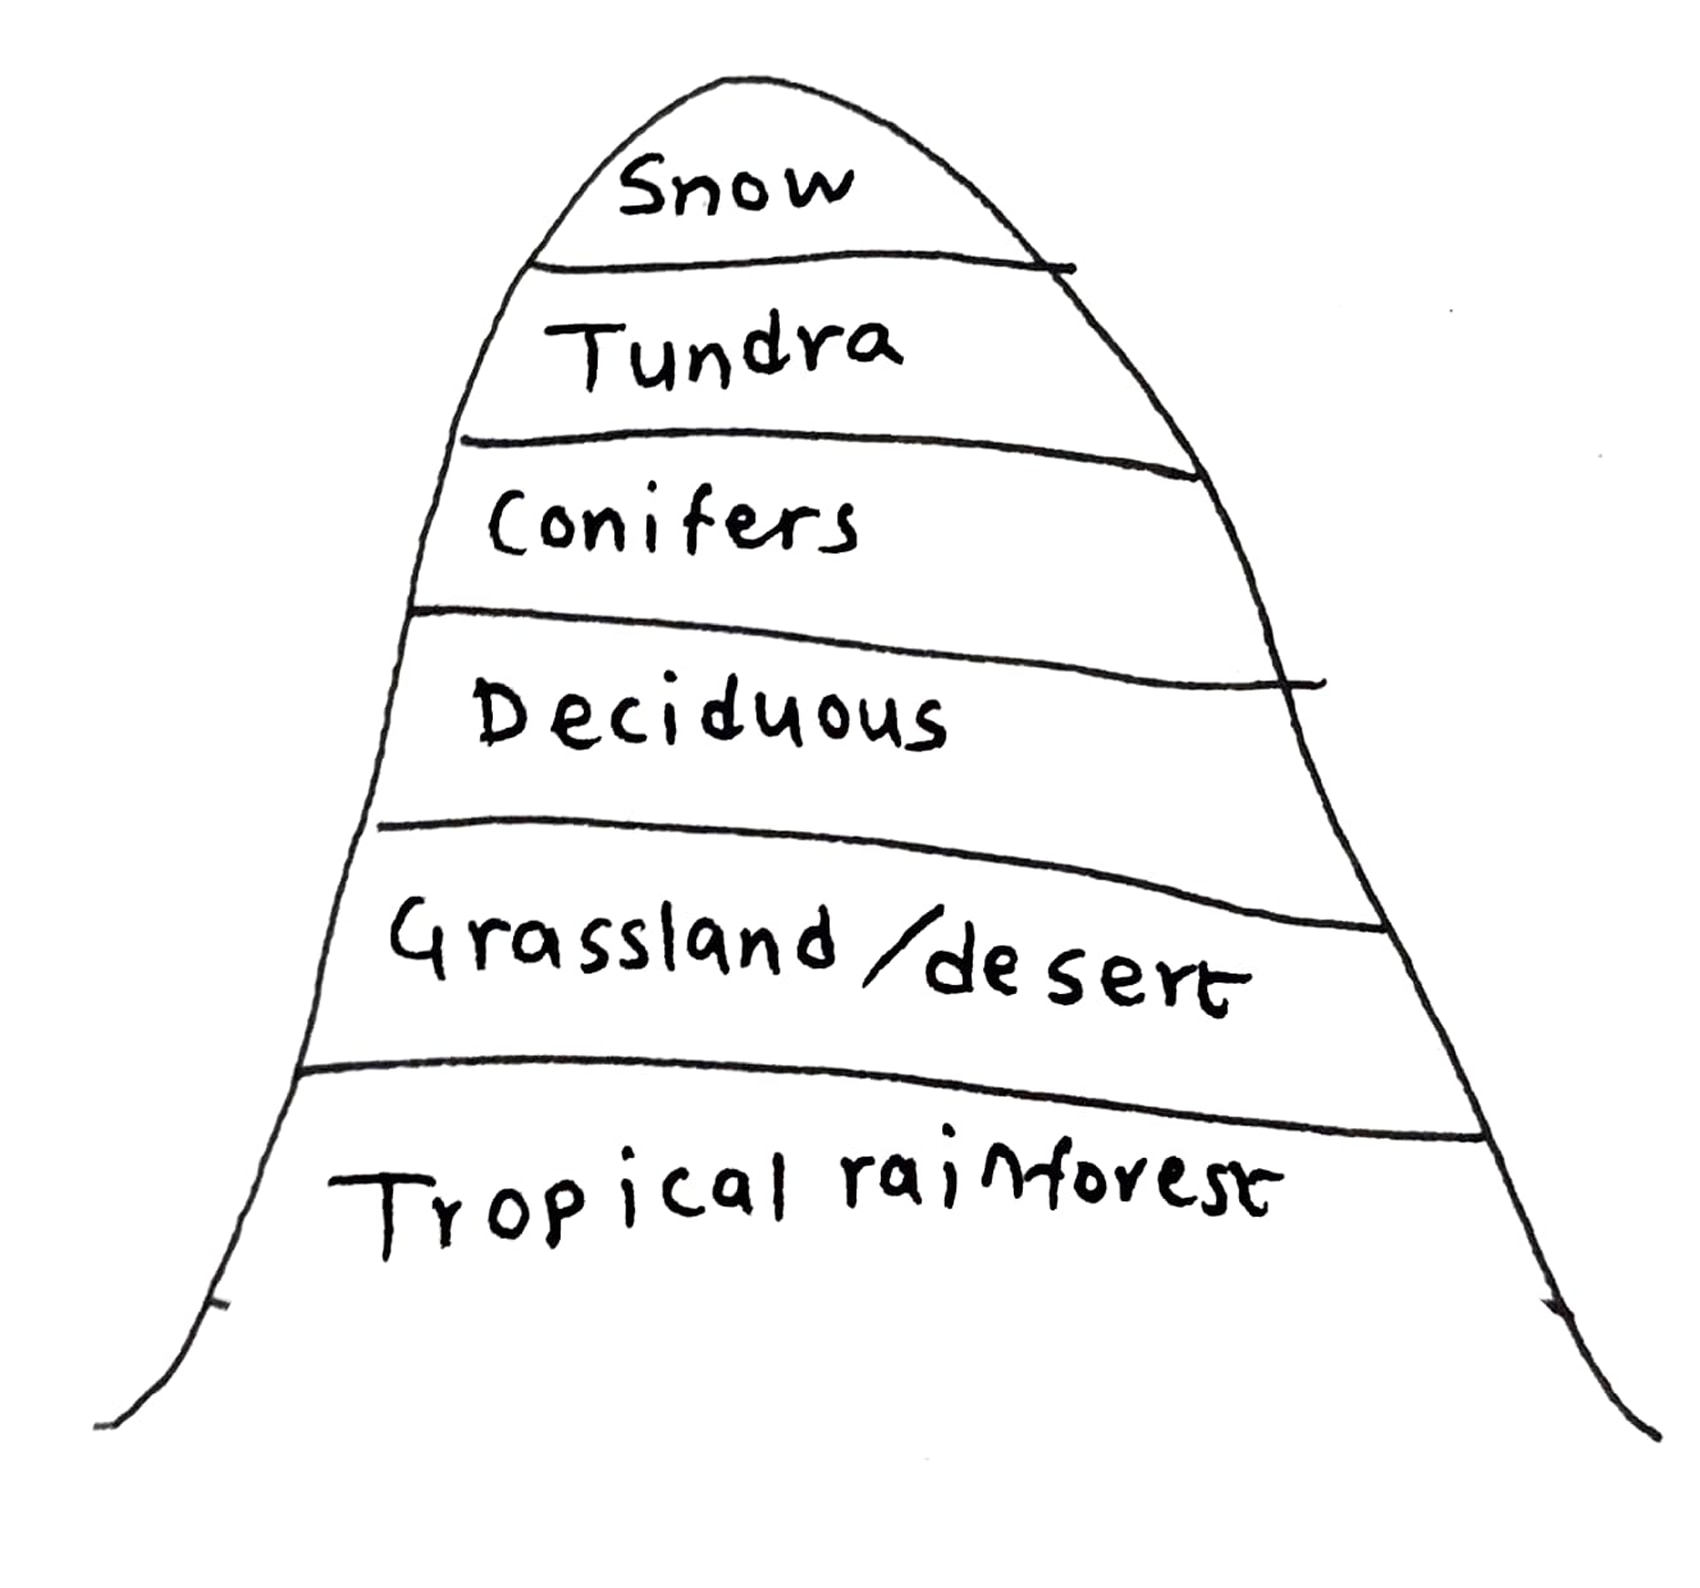 Snow
Tundra
Conifers
Deciduous
Grassland/desert
Tropical rainforest